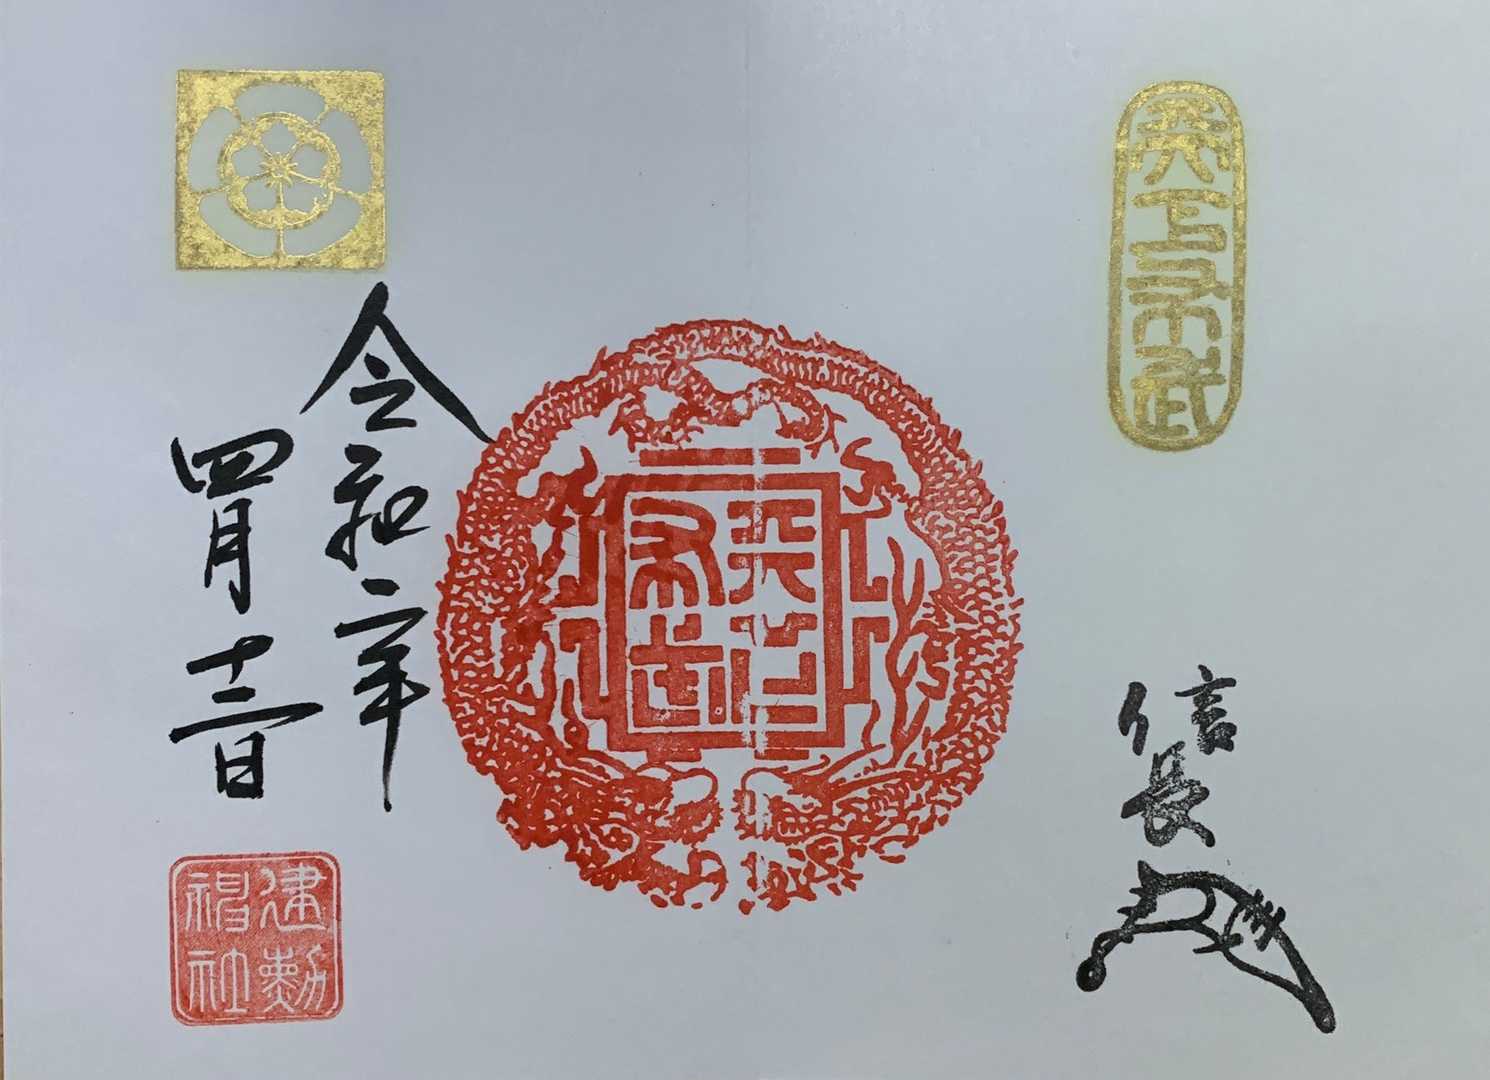 天下布武
信長
天下布武
令和二年
四月十二日
建勲神社